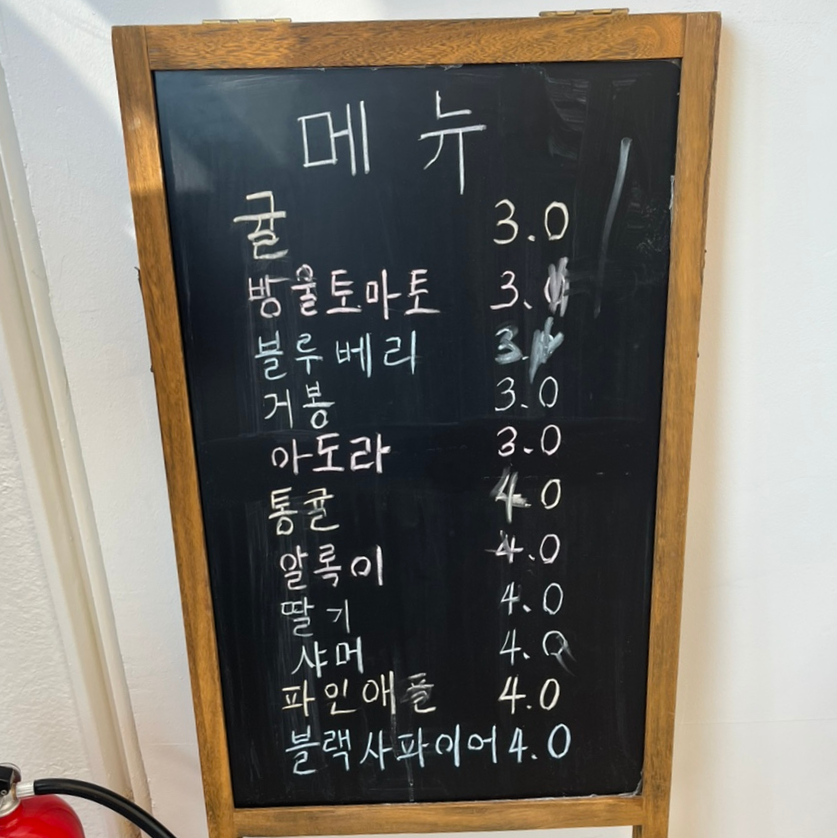 메뉴
귤 3.0
방울토마토 3.
블루베리 3.
거봉 3.0
아도라 3.0
통귤 4.0
알록이 4.0
딸기 4.0
샤머 4.0
파인애플 4.0
블랙사파이어 4.0